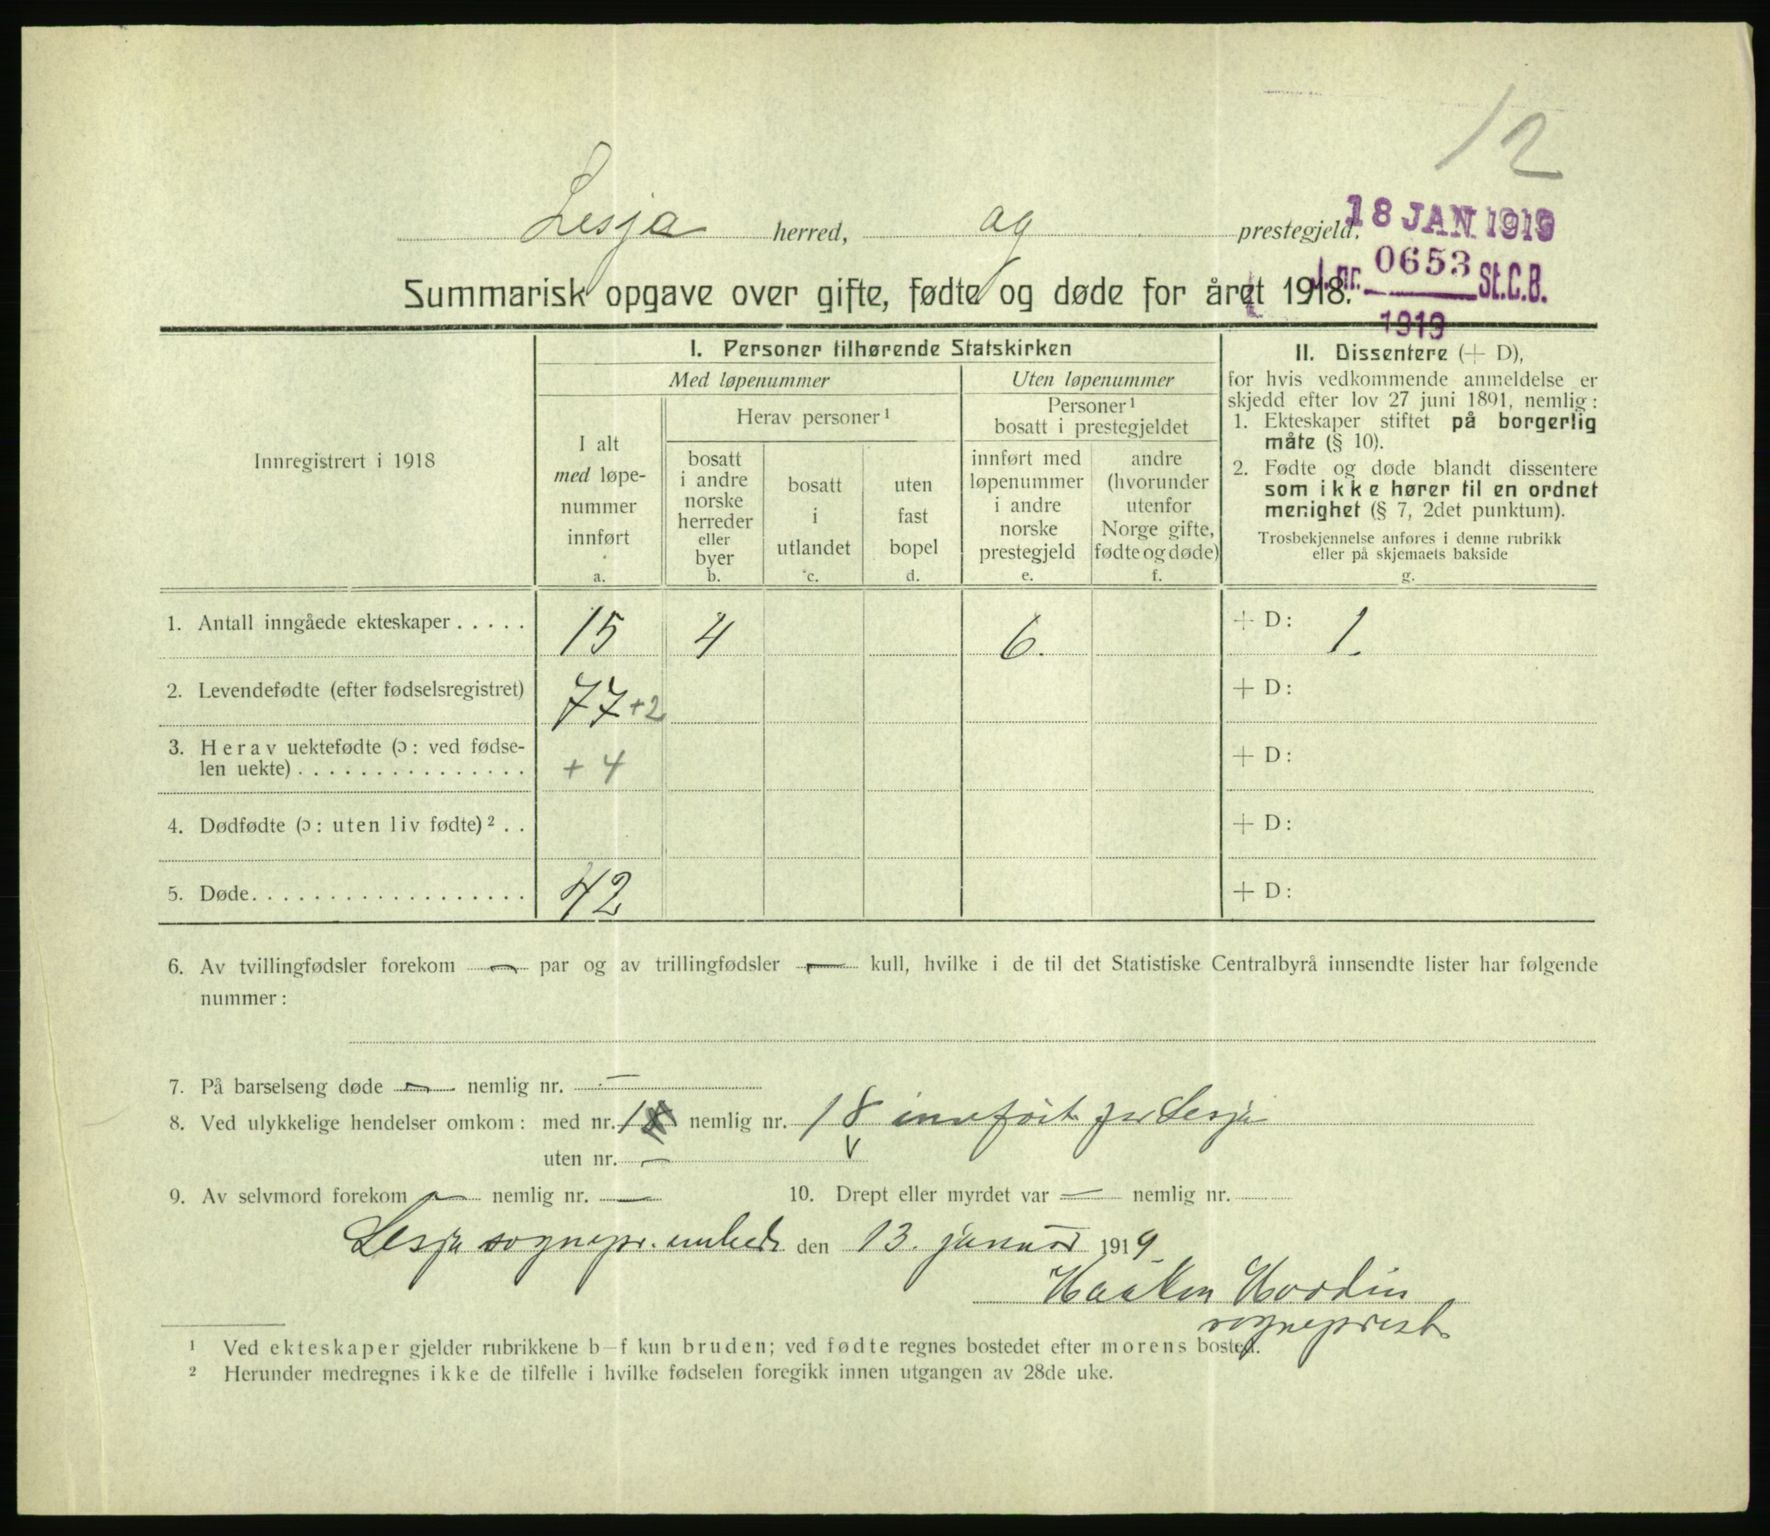 12
Lesja herred, og prestegjeld.
18 JAN. 1919
J.nr. 0653 St.C.B.
1919
Summarisk opgave over gifte, fødte og døde for året 1918.
Innregistrert i 1918
I. Personer tilhørende Statskirken
Med løpenummer
Uten løpenummer
I alt
med løpe-
nummer
innført
a.
Herav personer ¹
bosatt
i andre
norske
herreder
eller
byer
b.
bosatt
i
utlandet
c.
uten
fast
bopel
d.
Personer ¹
bosatt i prestegjeldet
innført med
løpenummer
i andre
norske
prestegjeld
e.
andre
(hvorunder
utenfor
Norge gifte,
fødte og døde)
f.
II. Dissentere (+ D),
for hvis vedkommende anmeldelse er
skjedd efter lov 27 juni 1891, nemlig:
1. Ekteskaper stiftet på borgerlig
måte (§ 10).
2. Fødte og døde blandt dissentere
som ikke hører til en ordnet
menighet (§ 7, 2det punktum).
Trosbekjennelse anføres i denne rubrikk
eller på skjemaets bakside
g.
1. Antall inngåede ekteskaper . . . . . 15 4 6. + D: 1.
2. Levendefødte (efter fødselsregistret) 77 + 2 + D:
3. Herav uektefødte (ɔ: ved fødse-
len uekte) . . . . . . . . . . . . . . . + 4 + D:
4. Dødfødte (ɔ: uten liv fødte) ² . . + D:
5. Døde. . . . . . . . . . . . . . . . . . 42 + D:
6. Av tvillingfødsler forekom — par og av trillingfødsler — kull, hvilke i de til det Statistiske Centralbyrå innsendte lister har følgende
nummer:
7. På barselseng døde — nemlig nr. —
8. Ved ulykkelige hendelser omkom: med nr. 1 nemlig nr. 18 innført for Lesja
uten nr. — v
9. Av selvmord forekom — nemlig nr. — 10. Drept eller myrdet var — nemlig nr.
Lesja sognepr. embede den 13. januar 1919
Haakon Hoodin
sogneprest
¹ Ved ekteskaper gjelder rubrikkene b—f kun bruden; ved fødte regnes bostedet efter morens bosted.
² Herunder medregnes ikke de tilfelle i hvilke fødselen foregikk innen utgangen av 28de uke.